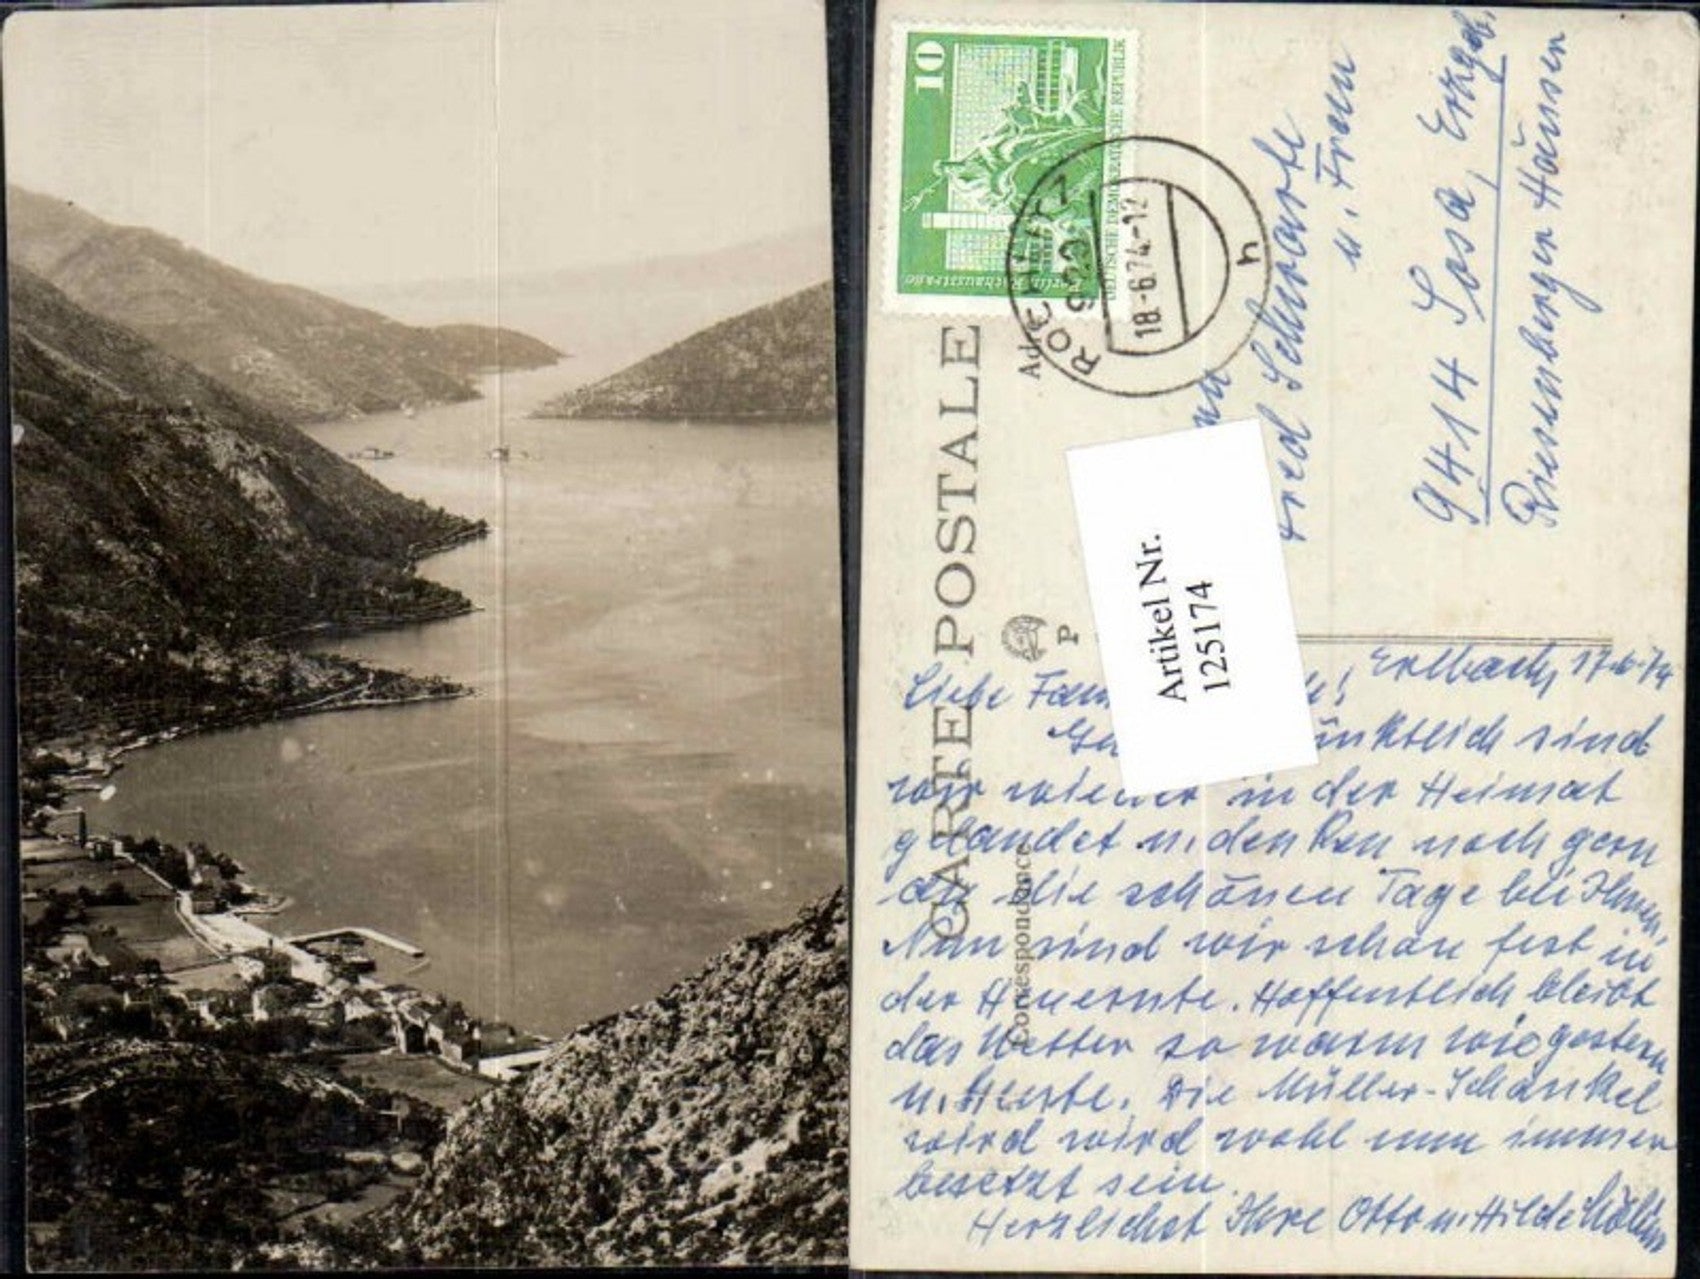 10
DEUTSCHE DEMOKRATISCHE REPUBLIK
Berlin, Rathausstraße
ROCHLITZ
18.-6.74.-12
h
CARTE POSTALE
Correspondance
P
Artikel Nr.
125174
Schwarte
u. Frau
9414 Sosa, Erzgeb.
Riesenberger Häuser
Erlbach, 17.6.74
Liebe
sind
wir wieder in der Heimat
gelandet u. denken noch gern
an die schönen Tage bei Ihnen.
Nun sind wir schon fest in
der Heuernte. Hoffentlich bleibt
das Wetter so warm wie gestern
u. heute. Die Müller-Schänkel
wird wird wohl nun immer
besetzt sein.
Herzlichst Ihre Otto u. Hilde